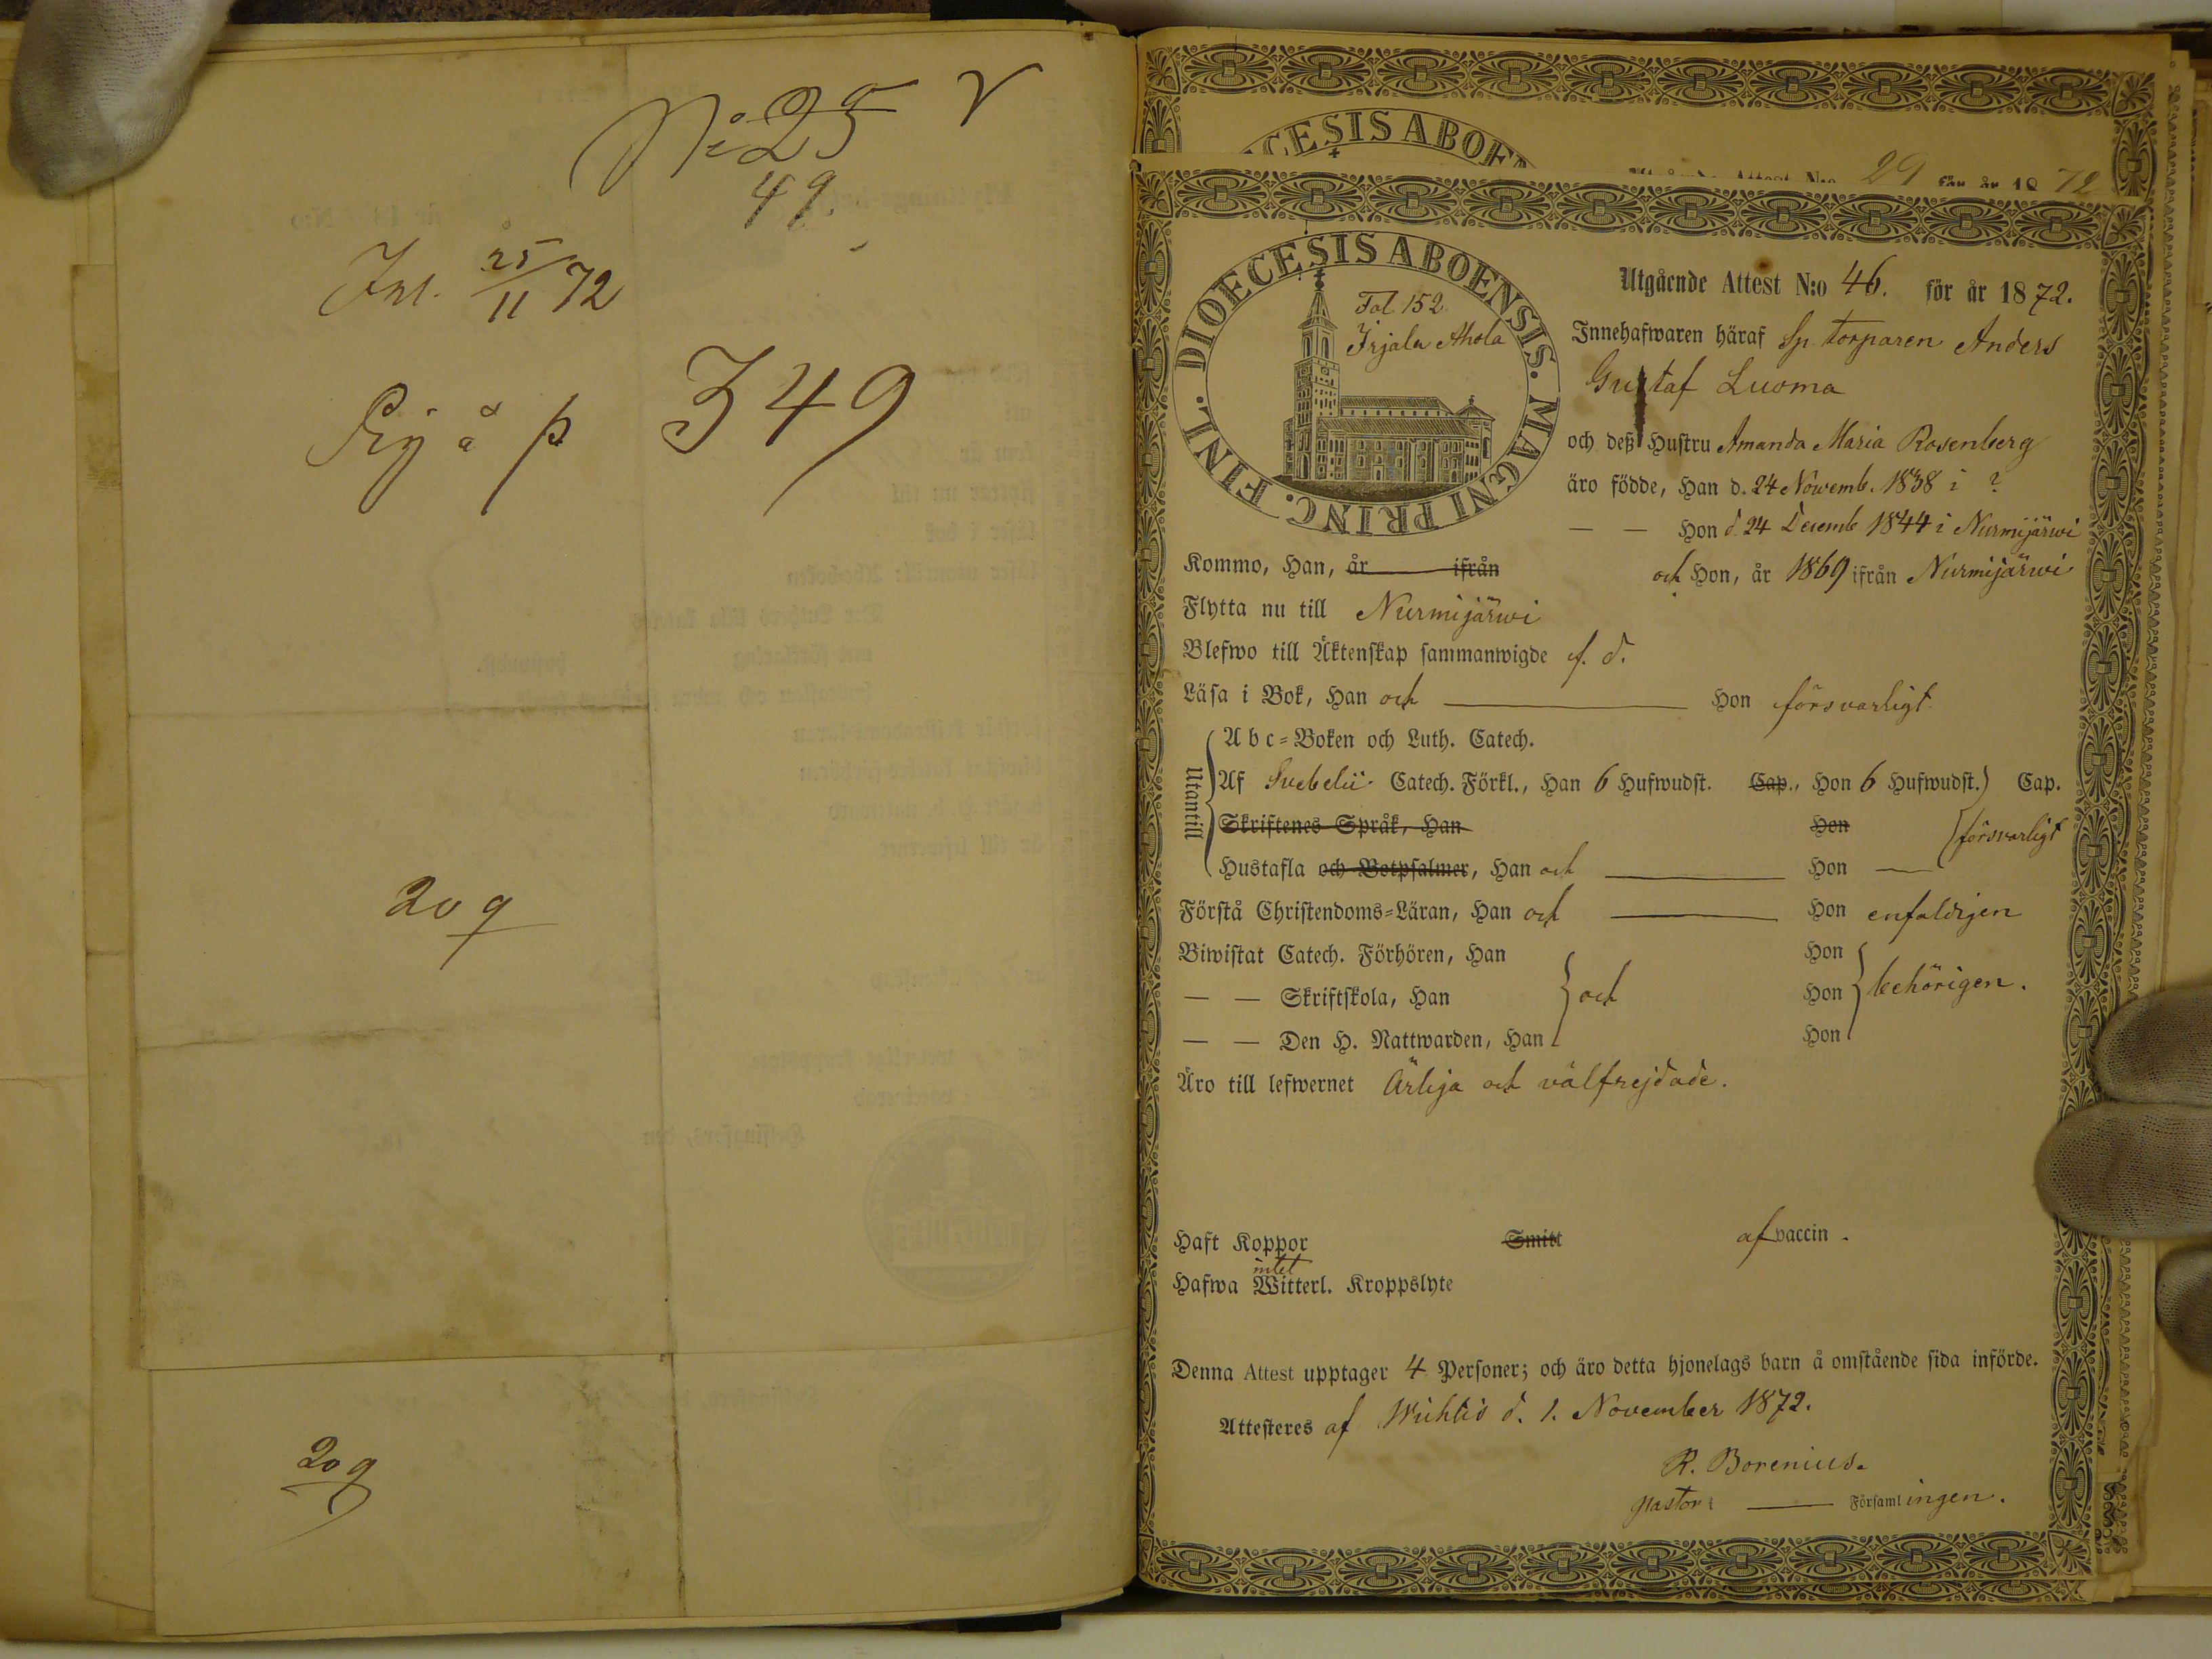 No 25
49.
Inl. 25/11 72
349
209
209
CESIS ABOE
29 för år 1872
DIOECESIS ABOENSIS. MAGNI PRINC. FINL.
Fol. 152.
Irjala Ahola
Utgående Attest N:o 46. för år 1872.
Innehafwaren häraf Sp. torparen Anders
Gustaf Luoma
och deß Hustru Amanda Maria Rosenberg
äro födde, Han d. 24 Nowemb. 1838 i ?
— — Hon d. 24 Decemb 1844 i Nurmijärwi
Kommo, Han, år ifrån och Hon, år 1869 ifrån Nurmijärwi
Flytta nu till Nurmijärwi
Blefwo till Äktenskap sammanwigde f. d.
Läsa i Bok, Han och — Hon försvarligt
Utantill
Abc=Boken och Luth. Catech.
Af Svebelii Catech. Förkl., Han 6 Hufwudst. Cap., Hon 6 Hufwudst. Cap.
Skriftenes Språk, Han Hon försvarligt
Hustafla och Botpsalmer, Han och — Hon —
Förstå Christendoms=Läran, Han och — Hon enfaldigen
Biwistat Catech. Förhören, Han Hon
— — Skriftskola, Han och Hon behörigen.
— — Den H. Nattwarden, Han Hon
Äro till lefwernet Ärliga och välfrejdade.
Haft Koppor Smitt af vaccin.
intet
Hafwa Witterl. Kroppslyte
Denna Attest upptager 4 Personer; och äro detta hjonelags barn å omstående sida införde.
Attesteres af Wichtis d. 1. November 1872.
R. Borenius.
Pastor i — Församlingen.